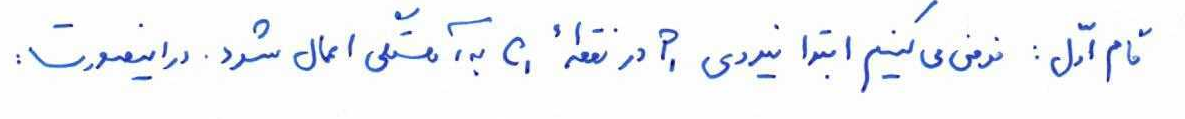 گام اوّل : فرض می کنیم ابتدا نیروی P₁ در نقطهٔ C₁ به آهستگی اعمال شود. در اینصورت: